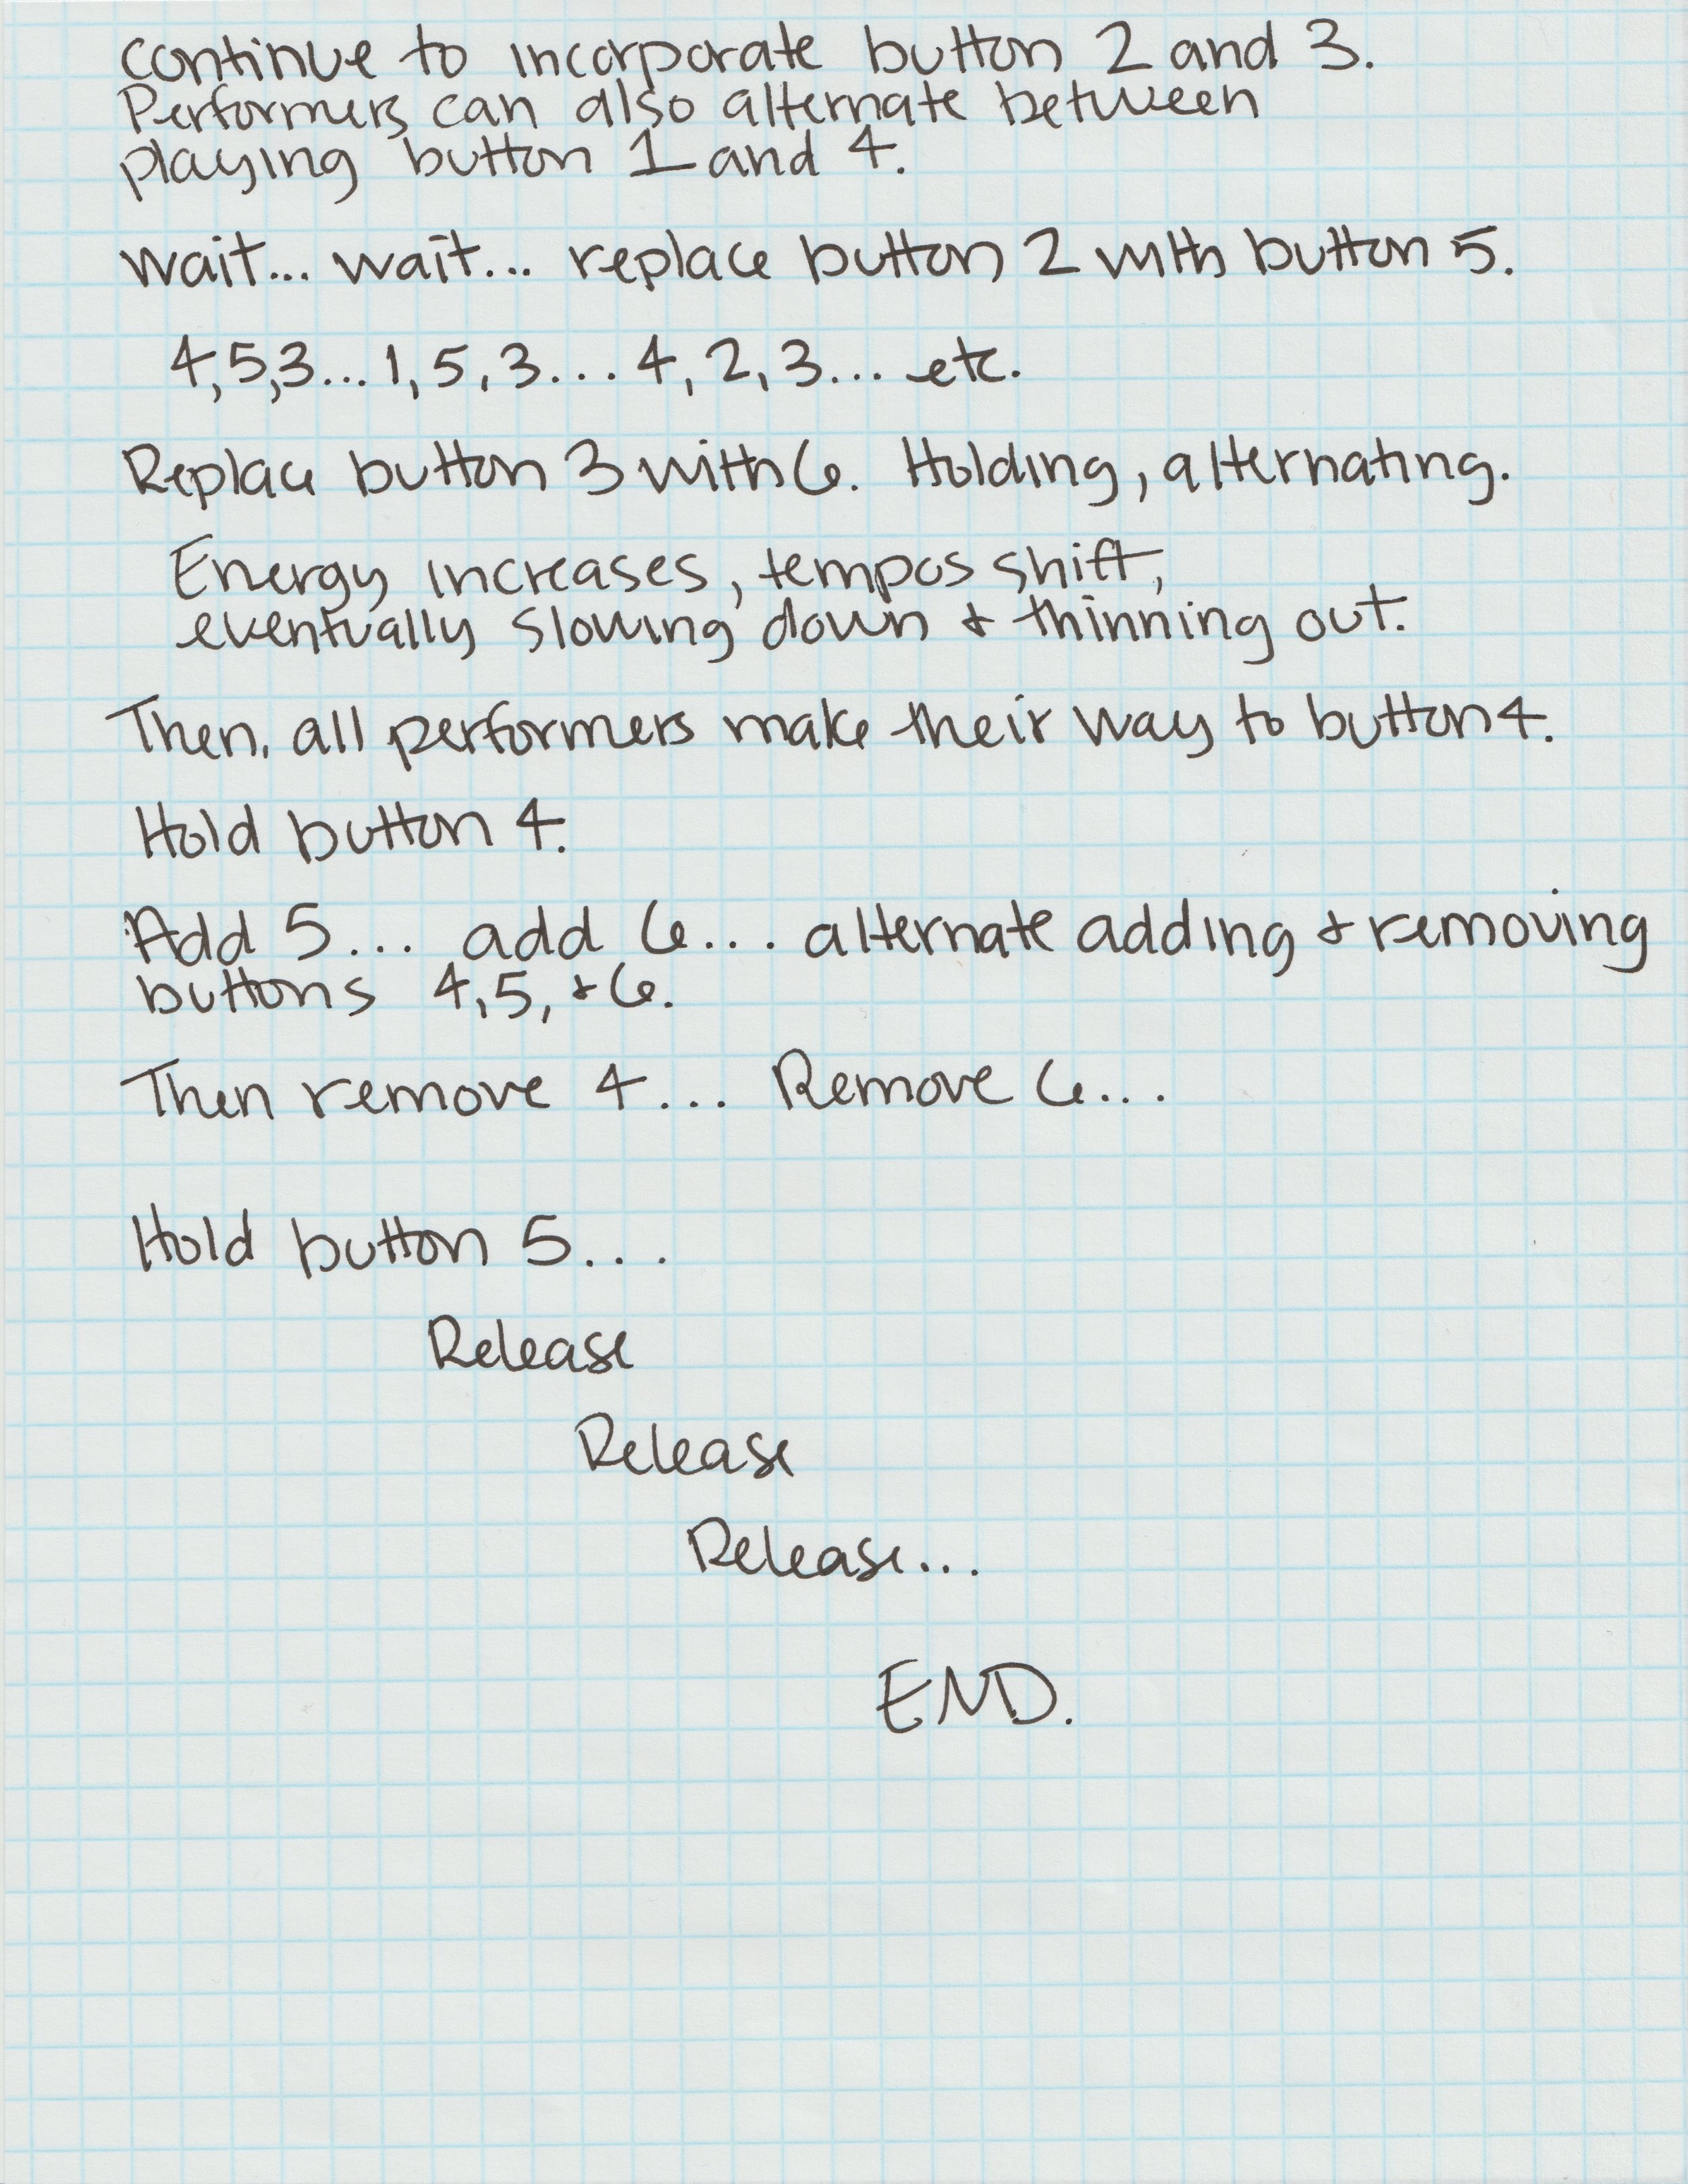 Continue to incorporate button 2 and 3.
Performers can also alternate between
playing button 1 and 4.
Wait... wait... replace button 2 with button 5.
4,5,3... 1,5,3... 4,2,3... etc.
Replace button 3 with 6. Holding, alternating.
Energy increases, tempos shift,
eventually slowing down & thinning out.
Then, all performers make their way to button 4.
Hold button 4.
Add 5... add 6... alternate adding & removing
buttons 4,5, & 6.
Then remove 4... Remove 6...
Hold button 5....
Release
Release
Release...
END.